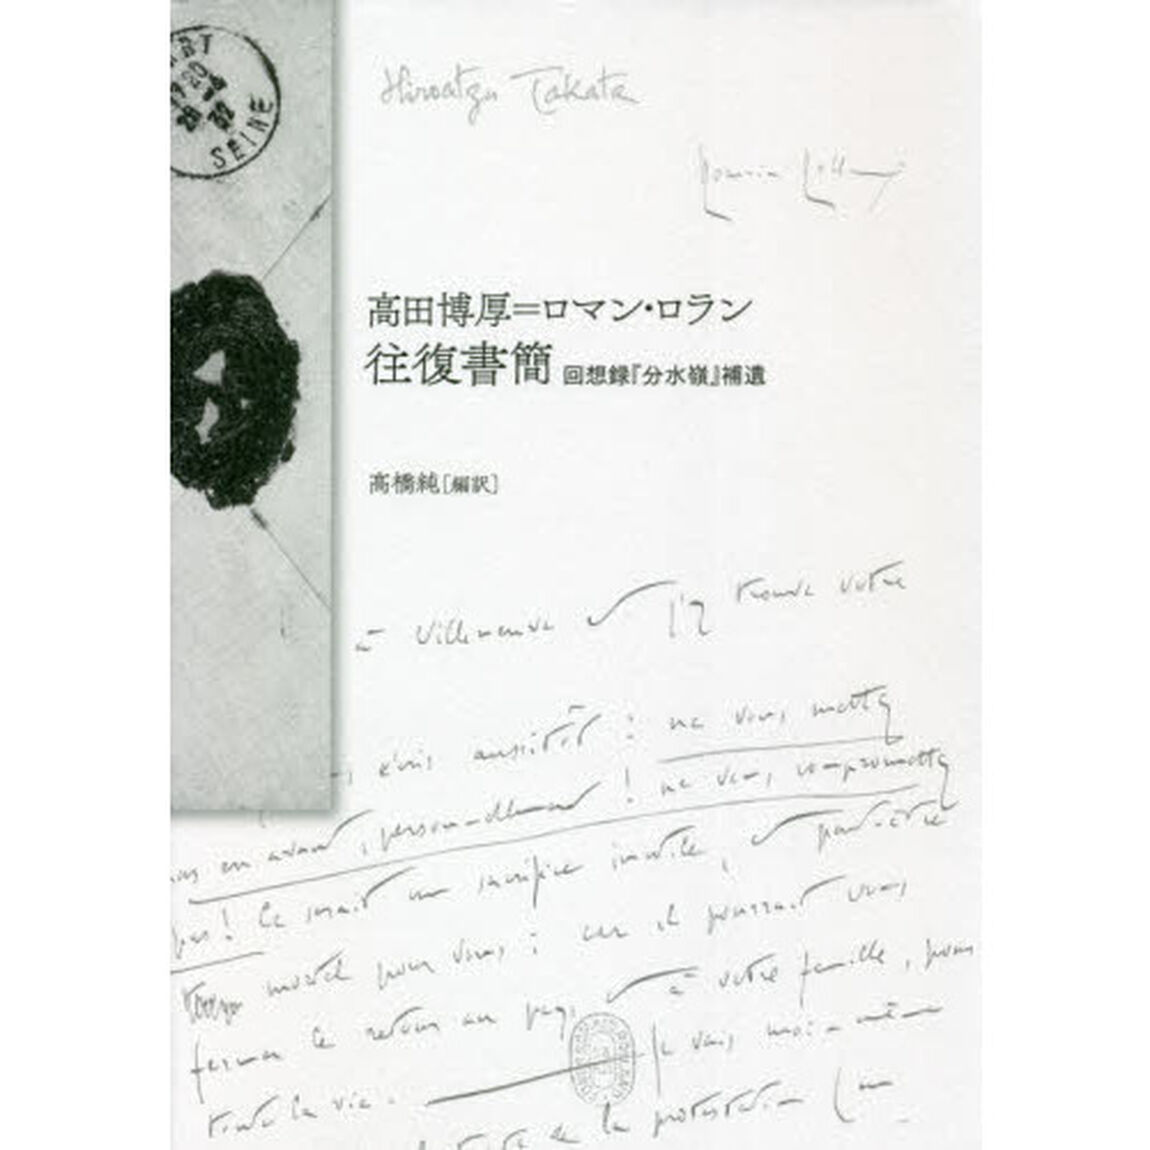 SEINE
Hiroatzu Takata
Romain Rolland
高田博厚＝ロマン・ロラン
往復書簡 回想録『分水嶺』補遺
高橋純［編訳］
à Villeneuve et j'y trouve votre
écris aussitôt : ne vous mettez
pas en avant, personnellement ! ne vous compromettez
pas ! Ce serait un sacrifice inutile, et peut-être
mortel pour vous ; car il pourrait vous
fermer le retour au pays, et à votre famille, pour
toute la vie. — Je vais moi-même
de la protestation